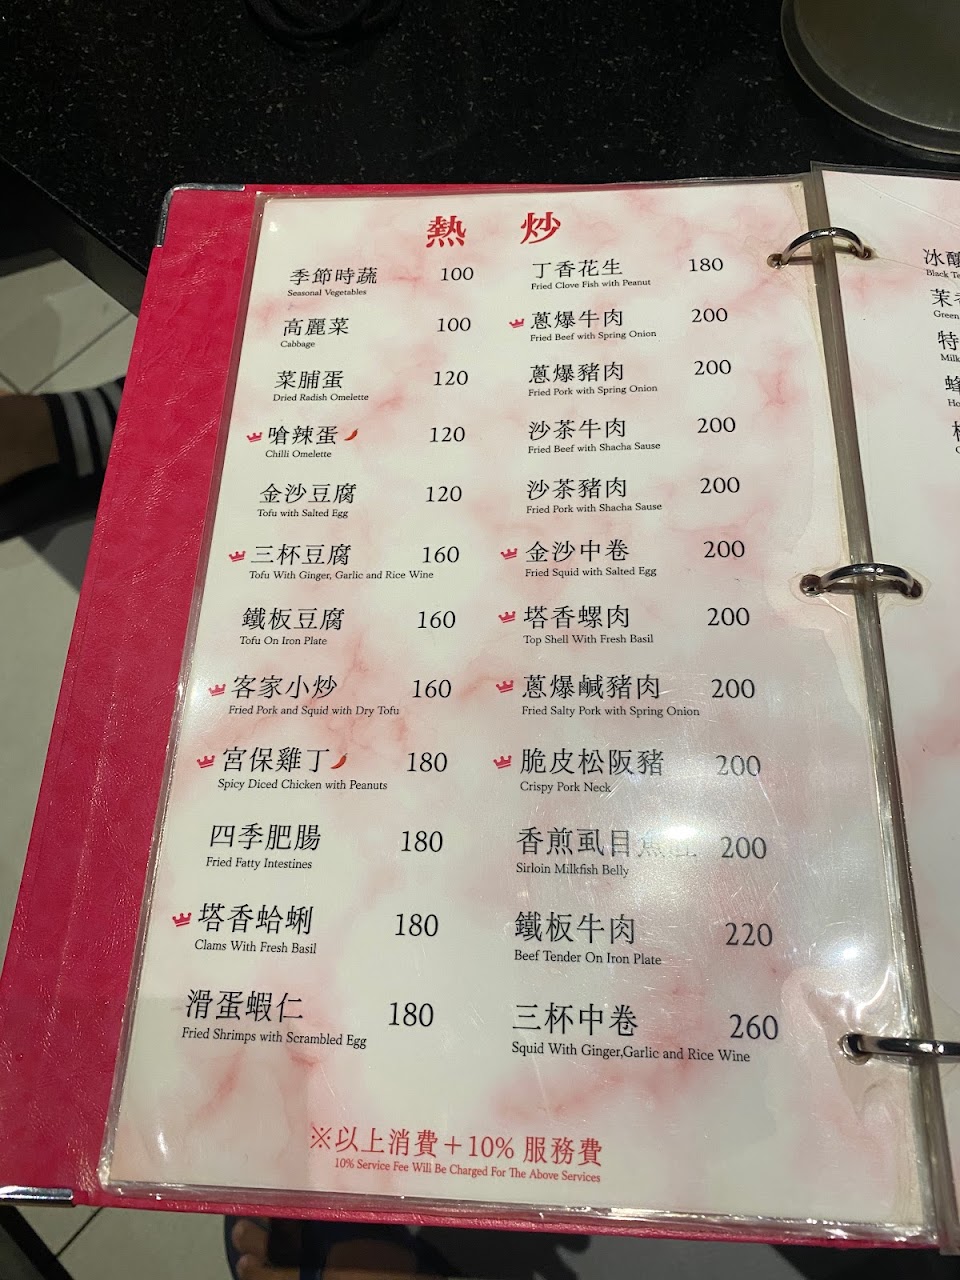 熱 炒
季節時蔬 100
Seasonal Vegetables
高麗菜 100
Cabbage
菜脯蛋 120
Dried Radish Omelette
嗆辣蛋 120
Chilli Omelette
金沙豆腐 120
Tofu with Salted Egg
三杯豆腐 160
Tofu With Ginger, Garlic and Rice Wine
鐵板豆腐 160
Tofu On Iron Plate
客家小炒 160
Fried Pork and Squid with Dry Tofu
宮保雞丁 180
Spicy Diced Chicken with Peanuts
四季肥腸 180
Fried Fatty Intestines
塔香蛤蜊 180
Clams With Fresh Basil
滑蛋蝦仁 180
Fried Shrimps with Scrambled Egg
丁香花生 180
Fried Clove Fish with Peanut
蔥爆牛肉 200
Fried Beef with Spring Onion
蔥爆豬肉 200
Fried Pork with Spring Onion
沙茶牛肉 200
Fried Beef with Shacha Sause
沙茶豬肉 200
Fried Pork with Shacha Sause
金沙中卷 200
Fried Squid with Salted Egg
塔香螺肉 200
Top Shell With Fresh Basil
蔥爆鹹豬肉 200
Fried Salty Pork with Spring Onion
脆皮松阪豬 200
Crispy Pork Neck
香煎虱目魚肚 200
Sirloin Milkfish Belly
鐵板牛肉 220
Beef Tender On Iron Plate
三杯中卷 260
Squid With Ginger,Garlic and Rice Wine
※以上消費＋10% 服務費
10% Service Fee Will Be Charged For The Above Services
冰釀
Black
Green
特
Milk
蜂